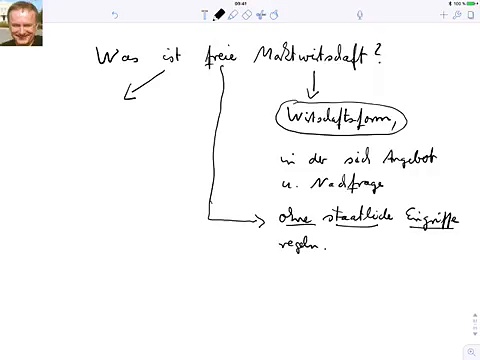 09:41
100 %
T
Was ist freie Marktwirtschaft?
Wirtschaftsform,
in der sich Angebot
u. Nachfrage
ohne staatliche Eingriffe
regeln.